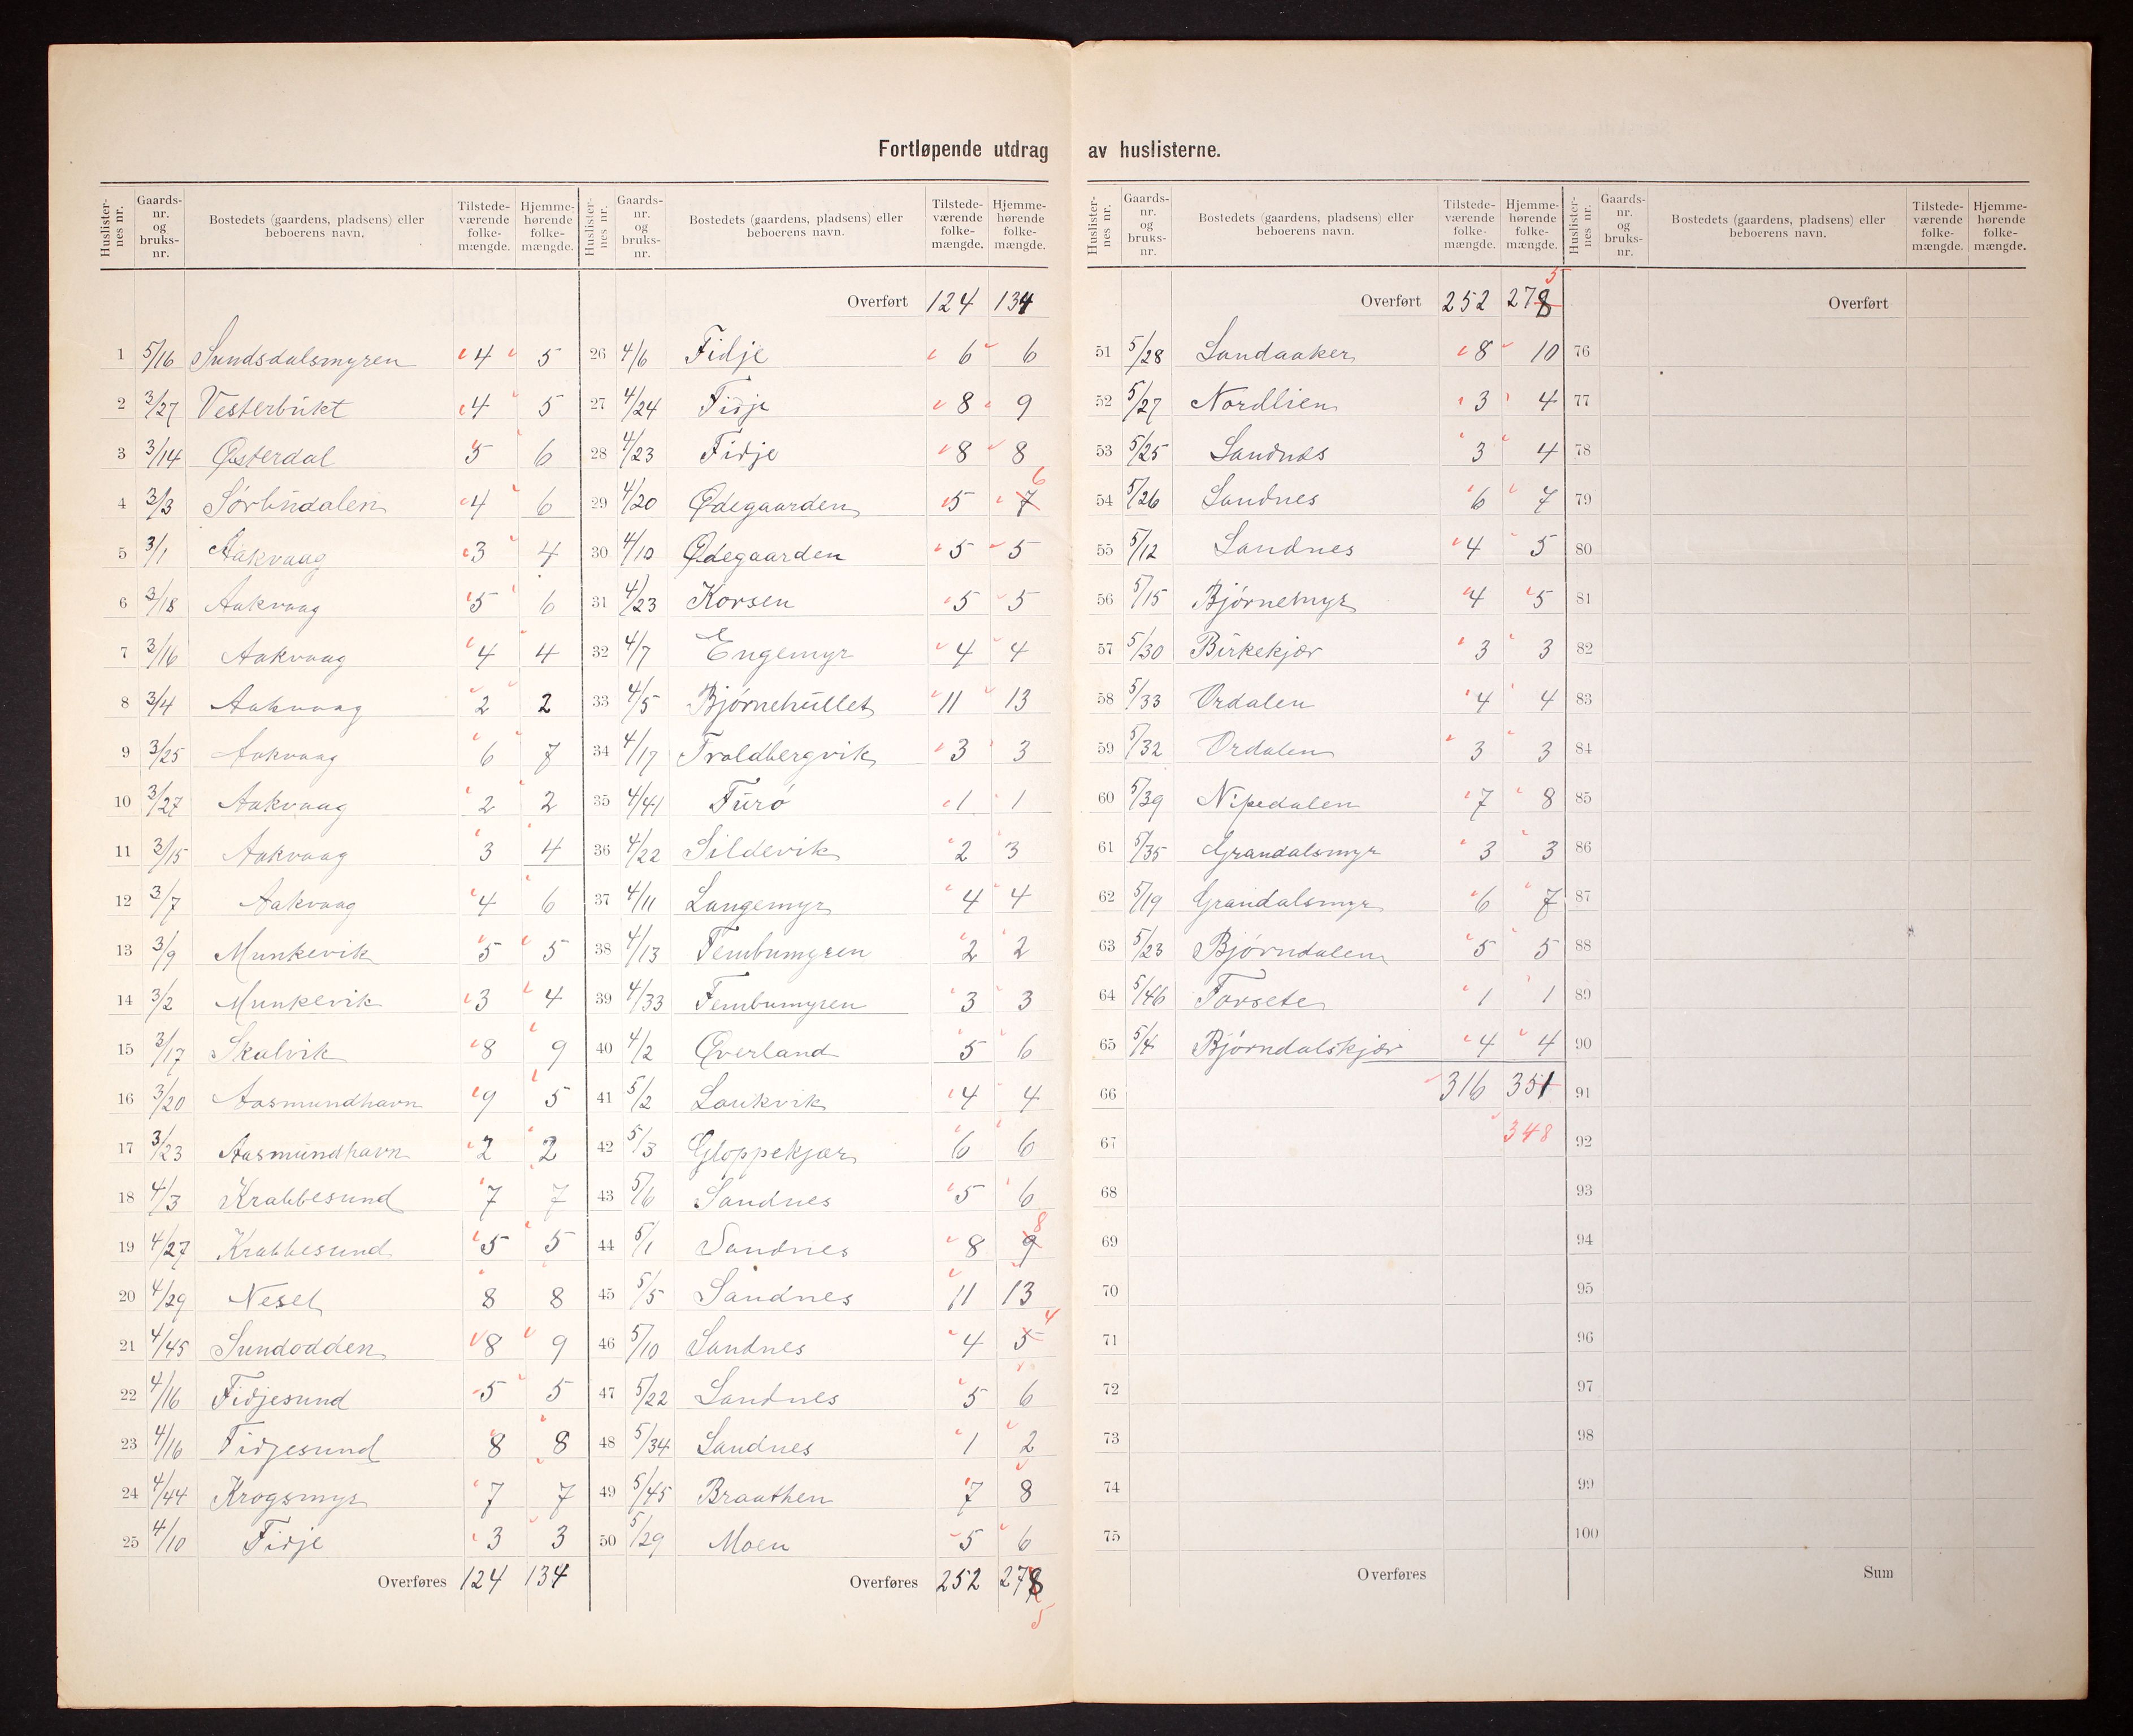 Fortløpende utdrag av huslisterne.
Huslister-nes nr. Gaards-nr. og bruks-nr. Bostedets (gaardens, pladsens) eller beboerens navn. Tilstede-værende folke-mængde. Hjemme-hørende folke-mængde.
1 5/16 Sundsdalsmyren 4 5
2 3/27 Vesterbukt 4 5
3 3/14 Østerdal 5 6
4 3/3 Sørbudalen 4 6
5 3/1 Aakvaag 3 4
6 3/18 Aakvaag 5 6
7 3/16 Aakvaag 4 4
8 3/4 Aakvaag 2 2
9 3/25 Aakvaag 6 7
10 3/27 Aakvaag 2 2
11 3/15 Aakvaag 3 4
12 3/7 Aakvaag 4 6
13 3/9 Munkevik 5 5
14 3/2 Munkevik 3 4
15 3/17 Skalvik 8 9
16 3/20 Aasmundhavn 9 5
17 3/23 Aasmundhavn 2 2
18 4/3 Krabbesund 7 7
19 4/27 Krabbesund 5 5
20 4/29 Neset 8 8
21 4/45 Sundodden 8 9
22 4/16 Fidjesund 5 5
23 4/16 Fidjesund 8 8
24 4/44 Krogsmyr 7 7
25 4/10 Fidje 3 3
Overføres 124 134
Huslister-nes nr. Gaards-nr. og bruks-nr. Bostedets (gaardens, pladsens) eller beboerens navn. Tilstede-værende folke-mængde. Hjemme-hørende folke-mængde.
Overført 124 134
26 4/6 Fidje 6 6
27 4/24 Fidje 8 9
28 4/23 Fidje 8 8
29 4/20 Ødegaarden 5 7 6
30 4/10 Ødegaarden 5 5
31 4/23 Korsen 5 5
32 4/7 Engemyr 4 4
33 4/5 Bjørnehullet 11 13
34 4/17 Troldbergvik 3 3
35 4/41 Furø 1 1
36 4/22 Sildevik 2 3
37 4/11 Langemyr 4 4
38 4/13 Fembumyren 2 2
39 4/33 Fembumyren 3 3
40 4/2 Øverland 5 6
41 5/2 Laukvik 4 4
42 5/3 Gloppekjær 6 6
43 5/6 Sandnes 5 6
44 5/1 Sandnes 8 9 8
45 5/5 Sandnes 11 13
46 5/10 Sandnes 4 5 4
47 5/22 Sandnes 5 6
48 5/34 Sandnes 1 2
49 5/45 Braathen 7 8
50 5/29 Moen 5 6
Overføres 252 278 5
Huslister-nes nr. Gaards-nr. og bruks-nr. Bostedets (gaardens, pladsens) eller beboerens navn. Tilstede-værende folke-mængde. Hjemme-hørende folke-mængde.
Overført 252 278 5
51 5/28 Sandaaker 8 10
52 5/27 Nordlien 3 4
53 5/25 Sandnes 3 4
54 5/26 Sandnes 6 7
55 5/12 Sandnes 4 5
56 5/15 Bjørnemyr 4 5
57 5/30 Birkekjær 3 3
58 5/33 Ordalen 4 4
59 5/32 Ordalen 3 3
60 5/39 Nipedalen 7 8
61 5/35 Grandalsmyr 3 3
62 5/19 Grandalsmyr 6 7
63 5/23 Bjørndalen 5 5
64 5/46 Torsete 1 1
65 5/4 Bjørndalskjær 4 4
66 316 351
67 348
68
69
70
71
72
73
74
75
Overføres
Huslister-nes nr. Gaards-nr. og bruks-nr. Bostedets (gaardens, pladsens) eller beboerens navn. Tilstede-værende folke-mængde. Hjemme-hørende folke-mængde.
Overført
76
77
78
79
80
81
82
83
84
85
86
87
88
89
90
91
92
93
94
95
96
97
98
99
100
Sum